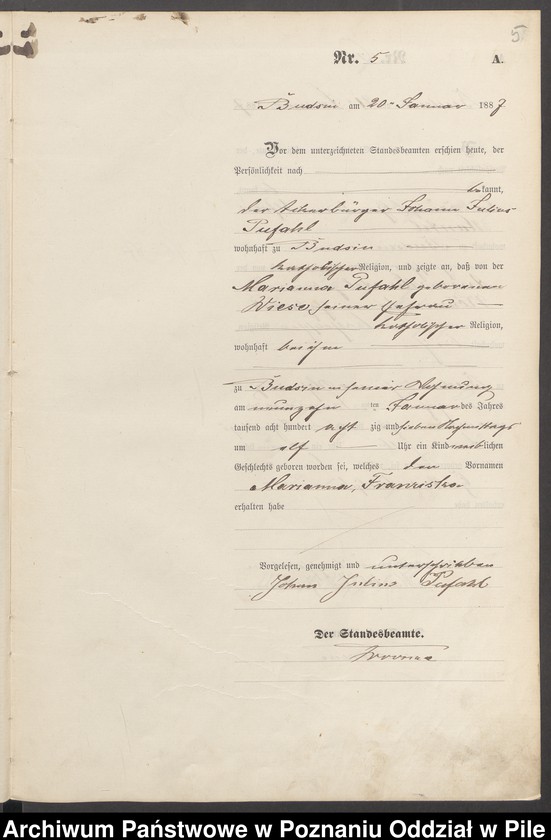 5
Nr. 5 A.
Budsin am 20 Januar 1887
Vor dem unterzeichneten Standesbeamten erschien heute, der
Persönlichkeit nach
bekannt,
der Ackerbürger Johann Julius
Pufahl
wohnhaft zu Budsin
katholischer Religion, und zeigte an, daß von der
Marianna Pufahl geborenen
Wiese, seiner Ehefrau
katholischer Religion,
wohnhaft bei ihm
zu Budsin in seiner Wohnung
am neunzehn ten Januar des Jahres
tausend acht hundert acht zig und sieben
um elf Uhr ein Kind weiblichen
Geschlechts geboren worden sei, welches den Vornamen
Marianna, Franziska
erhalten habe
Vorgelesen, genehmigt und unterschrieben
Johan Julius Pufahl
Der Standesbeamte.
Archiwum Państwowe w Poznaniu Oddział w Pile